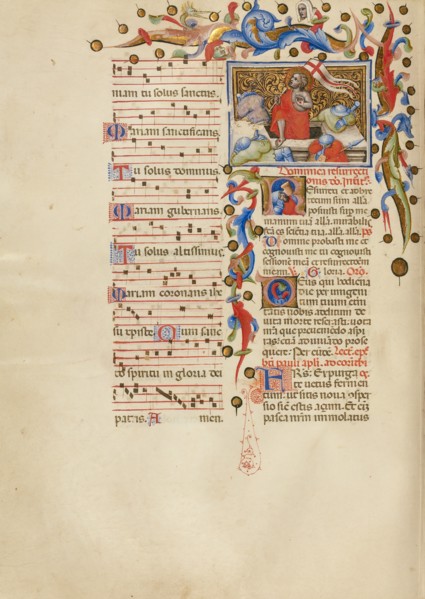 niam tu solus sanctus.
Mariam sanctificans.
Tu solus dominus.
Mariam gubernans.
Tu solus altissimus.
Mariam coronans ihe
su xpiste. Cum sanc
to spiritu in gloria dei
patris. A men.
Dominica resurrecti
onis
Resurexi et adhuc
tecum sum alla.
posuisti sup me
manum tua alla. mirabilis
fca es scientia tua. alla. alla. ps
Domine probasti me et
cognouisti me tu cognouisti
sessionē meā et resurrectionē
meam. V. Gloria. Oro.
Deus qui hodierna
die per unigeni
tum tuum eterni
tatis nobis aditum de
uicta morte reserasti. uota
nra que preueniendo aspi
ras. etiā adiuuando prose
quere. Per eundē. Lectio epłe
bti pauli apli. ad corinthi
FRS. Expurga
te uetus fermen
tum. ut sitis noua consper
sio sic estis açimi. Et eī
pasca nrm immolatus